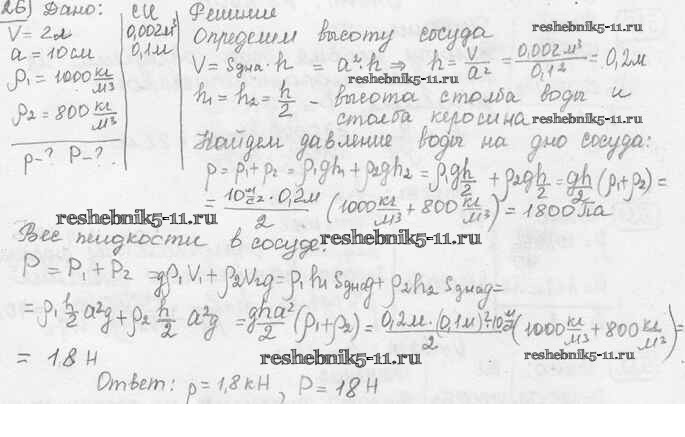 26) Дано: СИ Решение
V = 2л 0,002м³ Определим высоту сосуда
a = 10см 0,1м V = Sдна · h = a² · h ⇒ h = V/a² = 0,002м³/0,1² = 0,2м
ρ₁ = 1000 кг/м³ h₁ = h₂ = h/2 - высота столба воды и
столба керосина
ρ₂ = 800 кг/м³ Найдем давление воды на дно сосуда:
p-? P-? p = p₁ + p₂ = ρ₁gh₁ + ρ₂gh₂ = ρ₁g h/2 + ρ₂g h/2 = gh/2 (ρ₁+ρ₂) =
= 10 м/с² · 0,2м / 2 (1000 кг/м³ + 800 кг/м³) = 1800 Па
Вес жидкости в сосуде:
P = P₁ + P₂ = gρ₁V₁ + ρ₂V₂g = ρ₁h₁Sднаg + ρ₂h₂Sднаg =
= ρ₁ h/2 a²g + ρ₂ h/2 a²g = gha²/2 (ρ₁+ρ₂) = 0,2м · (0,1м)² · 10 м/с² / 2 (1000 кг/м³ + 800 кг/м³) =
= 18 Н
Ответ: p = 1,8кН, P = 18Н
reshebnik5-11.ru
reshebnik5-11.ru
reshebnik5-11.ru
reshebnik5-11.ru
reshebnik5-11.ru
reshebnik5-11.ru
reshebnik5-11.ru